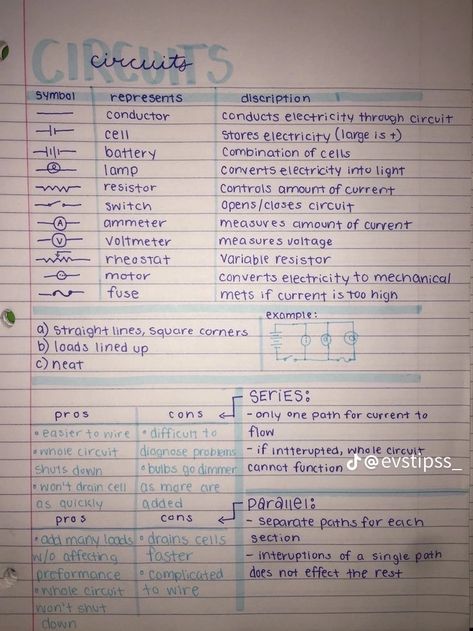 CIRCUITS
circuits
symbol represents discription
conductor conducts electricity through circuit
cell stores electricity (large is +)
battery combination of cells
lamp converts electricity into light
resistor controls amount of current
switch opens/closes circuit
A ammeter measures amount of current
V voltmeter measures voltage
rheostat variable resistor
motor converts electricity to mechanical
fuse mets if current is too high
a) straight lines, square corners
b) loads lined up
c) neat
example:
SERIES:
- only one path for current to
flow
- if intterupted, whole circuit
cannot function
pros cons
• easier to wire • difficult to
• whole circuit diagnose problems
shuts down • bulbs go dimmer
• won't drain cell as more are
as quickly added
@evstipss_
parallel:
- separate paths for each
section
- interuptions of a single path
does not effect the rest
pros cons
• add many loads • drains cells
w/o affecting faster
preformance • complicated
• whole circuit to wire
won't shut
down